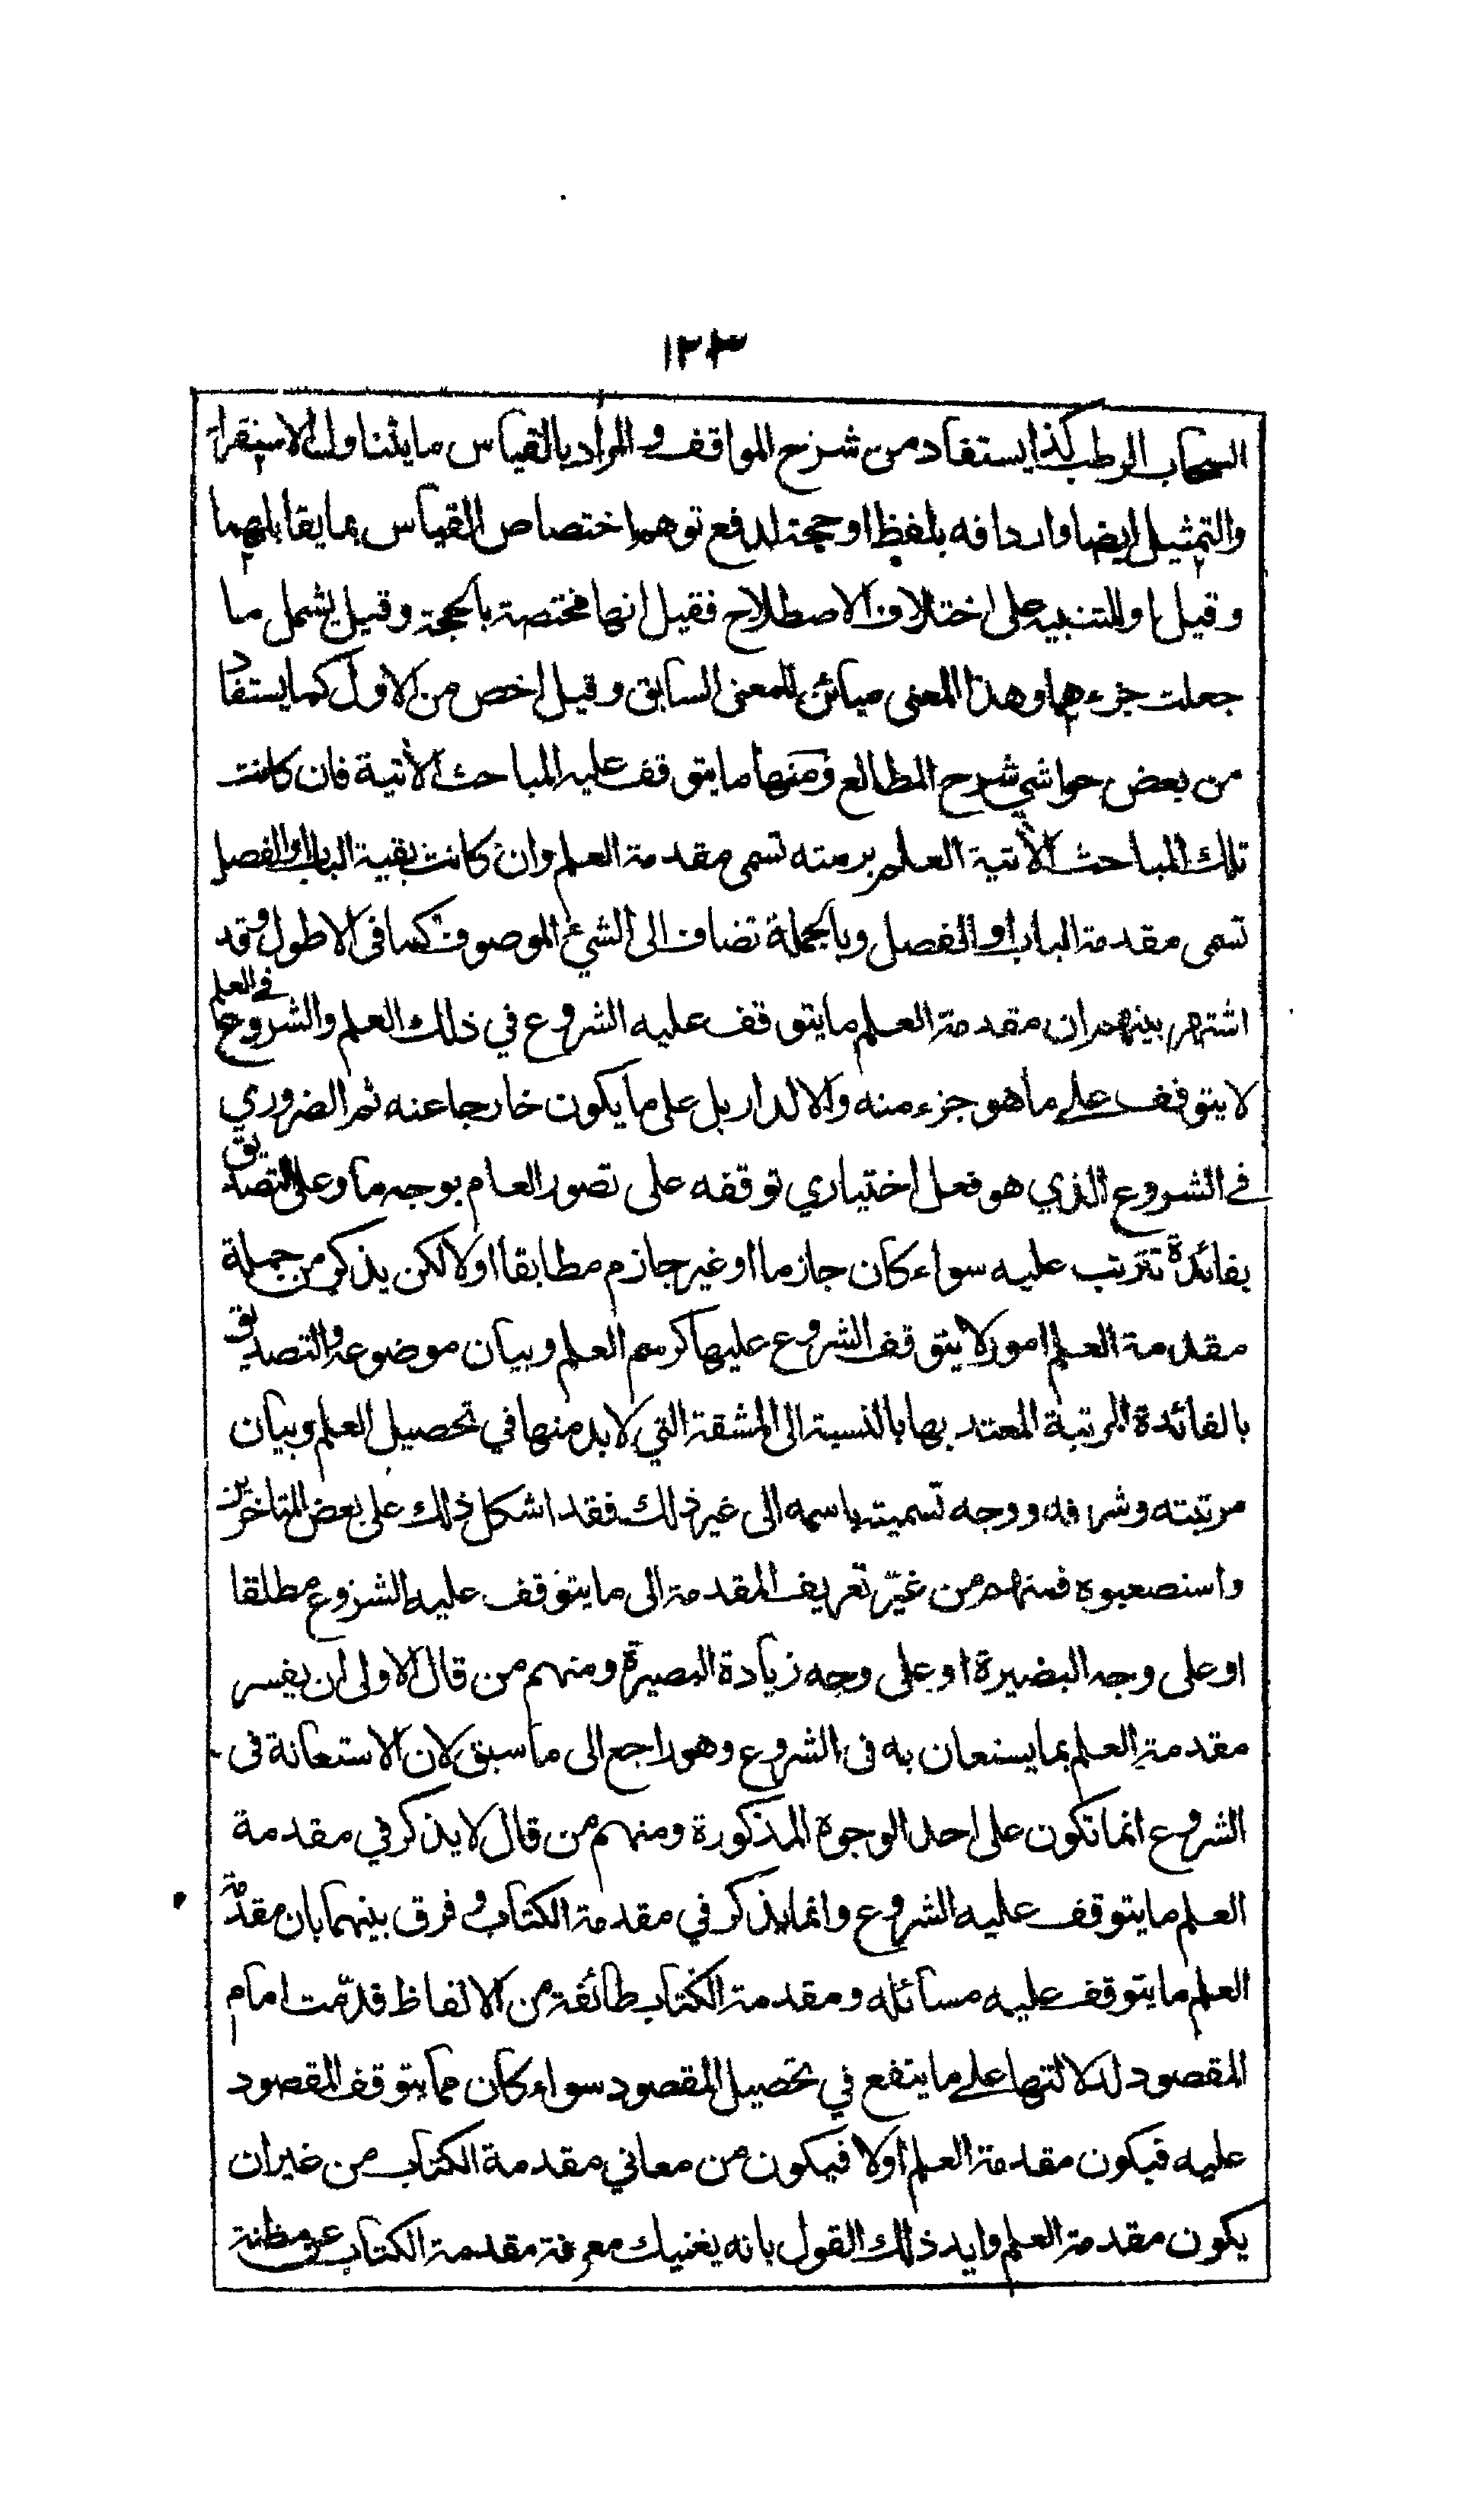 ١٢٢٣
السحاب الرطب كذا يستفاد من شرح المواقف والمراد بالقياس ما يتناول الاستقراء
والتمثيل ايضا وارداف‍ه بلفظ او حجة لدفع توهم اختصاص القياس بما يقابلهما
وقيل او للتنبيه على اختلاف الاصطلاح فقيل انها مختصة بالحجة وقيل يشمل ما
جعلت جزءهما وهذا المعنى مبائن للمعنى السابق وقيل اخص من الاول كما يستفاد
من بعض حواشي شرح المطالع ومنها ما يتوقف عليه المباحث الآتية فان كانت
تلك المباحث الآتية العلم برمته تسمى مقدمة العلم وان كانت بقية الباب او الفصل
تسمى مقدمة الباب او الفصل وبالجملة تضاف الى الشيء الموصوف كما فى الاطول وقد
اشتهر بينهم ان مقدمة العلم ما يتوقف عليه الشروع في ذلك العلم والشروع في العلم
لا يتوقف على ما هو جزء منه والا لدار بل على ما يكون خارجا عنه ثم الضروري
في الشروع الذي هو فعل اختياري توقفه على تصور العلم بوجه ما وعلى التصديق
بفائدة تترتب عليه سواء كان جازما او غير جازم مطابقا اولا لكن يذكر من جملة
مقدمة العلم امور لا يتوقف الشروع عليها كرسم العلم وبيان موضوعه والتصديق
بالفائدة المرتبة المعتد بها بالنسبة الى المشقة التي لا بد منها في تحصيل العلم وبيان
مرتبته وشرفه ووجه تسميته باسمه الى غير ذلك فقد اشكل ذلك على بعض المتاخرين
واستصعبوه فمنهم من غيّر تعريف المقدمة الى ما يتوقف عليه الشروع مطلقا
او على وجه البصيرة او على وجه زيادة البصيرة ومنهم من قال الاولى ان يفسر
مقدمة العلم بما يستعان به فى الشروع وهو راجع الى ما سبق لان الاستعانة فى
الشروع انما تكون على احد الوجوه المذكورة ومنهم من قال لا يذكر في مقدمة
العلم ما يتوقف عليه الشروع وانما يذكر في مقدمة الكتاب وفرق بينهما بان مقدمة
العلم ما يتوقف عليه مسائله ومقدمة الكتاب طائفة من الالفاظ قدّمت امام
المقصود لدلالتها على ما ينفع في تحصيل المقصود سواء كان مما يتوقف المقصود
عليه فيكون مقدمة العلم اولا فيكون من معاني مقدمة الكتاب من غير ان
يكون مقدمة العلم وايد ذلك القول بانه يغنيك معرفة مقدمة الكتاب عن مظنة